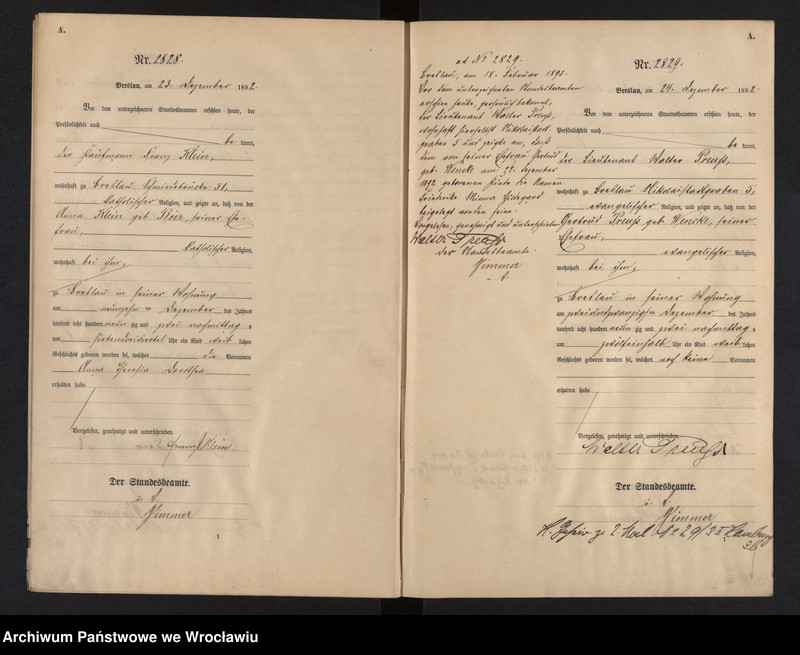 A.
Nr. 2828.
Breslau, am 23. Dezember 1892.
Vor dem unterzeichneten Standesbeamten erschien heute, der
Persönlichkeit nach
be kannt,
der Kaufmann Franz Klein,
wohnhaft zu Breslau Schmiedebrücke 51,
katholischer Religion, und zeigte an, daß von der
Anna Klein geb. seiner Ehe-
frau,
katholischer Religion,
wohnhaft bei ihm,
zu Breslau in seiner Wohnung
am neunzehn ten Dezember des Jahres
tausend acht hundert neun zig und zwei nachmittag s
um sieben Uhr ein Kind weib lichen
Geschlechts geboren worden sei, welches die Vornamen
Anna Theresia Dorothea
erhalten habe.
Vorgelesen, genehmigt und unterschrieben.
Franz Klein.
Der Standesbeamte.
i. V.
Zimmer
1
ad No 2829.
Breslau, am 18. Februar 1893.
Vor dem unterzeichneten Standesbeamten
erschien heute, persönlich bekannt,
der Lieutenant Walter Preuß,
wohnhaft hierselbst Nikolaistadt-
graben 5 und zeigte an, daß
dem von seiner Ehefrau Gertrud
geb. Wencke am 22. Dezember
1892 geborenen Kinde die Namen
Friederike Minna Hildegard
beigelegt worden seien.
Vorgelesen, genehmigt und unterschrieben
Walter Preuß
Der Standesbeamte.
Zimmer
i. V.
A.
Nr. 2829.
Breslau, am 24. Dezember 1892.
Vor dem unterzeichneten Standesbeamten erschien heute, der
Persönlichkeit nach
be kannt,
der Lieutenant Walter Preuß,
wohnhaft zu Breslau Nikolaistadtgraben 5,
evangelischer Religion, und zeigte an, daß von der
Gertrud Preuß geb. Wencke, seiner
Ehefrau,
evangelischer Religion,
wohnhaft bei ihm,
zu Breslau in seiner Wohnung
am zweiundzwanzig ten Dezember des Jahres
tausend acht hundert neun zig und zwei nachmittag s
um zwölfeinhalb Uhr ein Kind weib lichen
Geschlechts geboren worden sei, welches noch keine Vornamen
erhalten habe.
Vorgelesen, genehmigt und unterschrieben.
Walter Preuß
Der Standesbeamte.
i. V.
Zimmer
Hamburg
Archiwum Państwowe we Wrocławiu